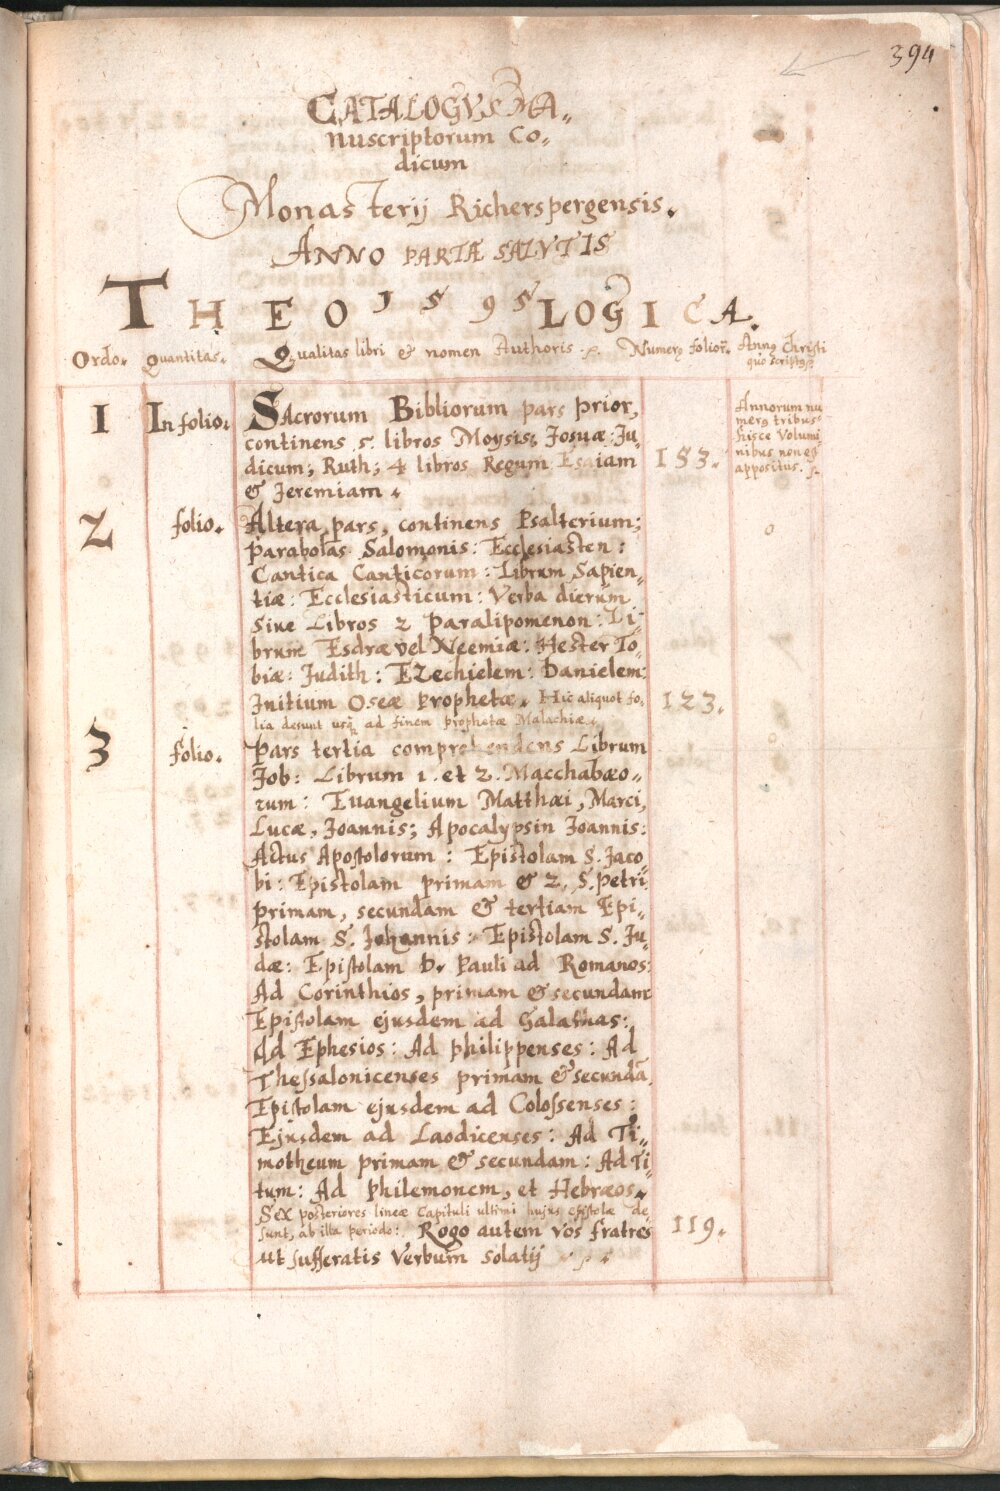 394
CATALOGVS MA„
nuscriptorum Co„
dicum
Monasterij Richerspergensis.
ANNO PARTÆ SALVTIS
1595
THEOLOGICA.
Ordo. Quantitas. Qualitas libri & nomen Authoris. Numerꝰ folioꝝ. Annꝰ Christi
quo scriptꝰ
1 In folio. SAcrorum Bibliorum pars prior, Annorum nu
continens 5. libros Moysis; Josuæ: Ju„ merꝰ tribus
dicum; Ruth; 4 libros Regum Esaiam 153. hisce Volumi
& Jeremiam. nibus non est
appositus.
2 folio. Altera pars, continens Psalterium; 0
Parabolas Salomonis: Ecclesiasten:
Cantica Canticorum: Librum Sapien„
tiæ: Ecclesiasticum: Verba dierum
siue Libros 2 Paralipomenon: Li„
brum Esdræ vel Neemiæ: Hester To„
biæ: Judith: EZechielem: Danielem:
Initium Oseæ Prophetæ. Hic aliquot fo„ 123.
lia desunt usq ad finem prophetæ Malachiæ.
3 folio. Pars tertia comprehendens Librum
Job: Librum 1. et 2. Macchabæo„
rum: Euangelium Matthæi, Marci,
Lucæ, Joannis; Apocalypsin Joannis:
Actus Apostolorum: Epistolam S. Jaco„
bi: Epistolam primam & 2. S. Petri;
primam, secundam & tertiam Epi„
stolam S. Johannis: Epistolam S. Ju„
dæ: Epistolam D. Pauli ad Romanos:
Ad Corinthios, primam & secundam:
Epistolam ejusdem ad Galathas:
Ad Ephesios: Ad Philippenses: Ad
Thessalonicenses primam & secundã
Epistolam ejusdem ad Colossenses:
Ejusdem ad Laodicenses: Ad Ti„
motheum primam & secundam: Ad Ti„
tum: Ad Philemonem, et Hebræos.
Sex posteriores lineæ Capituli ultimi hujus epistolæ de
sunt, ab illa periodo: Rogo autem vos fratres 119.
ut sufferatis Verbum solatij